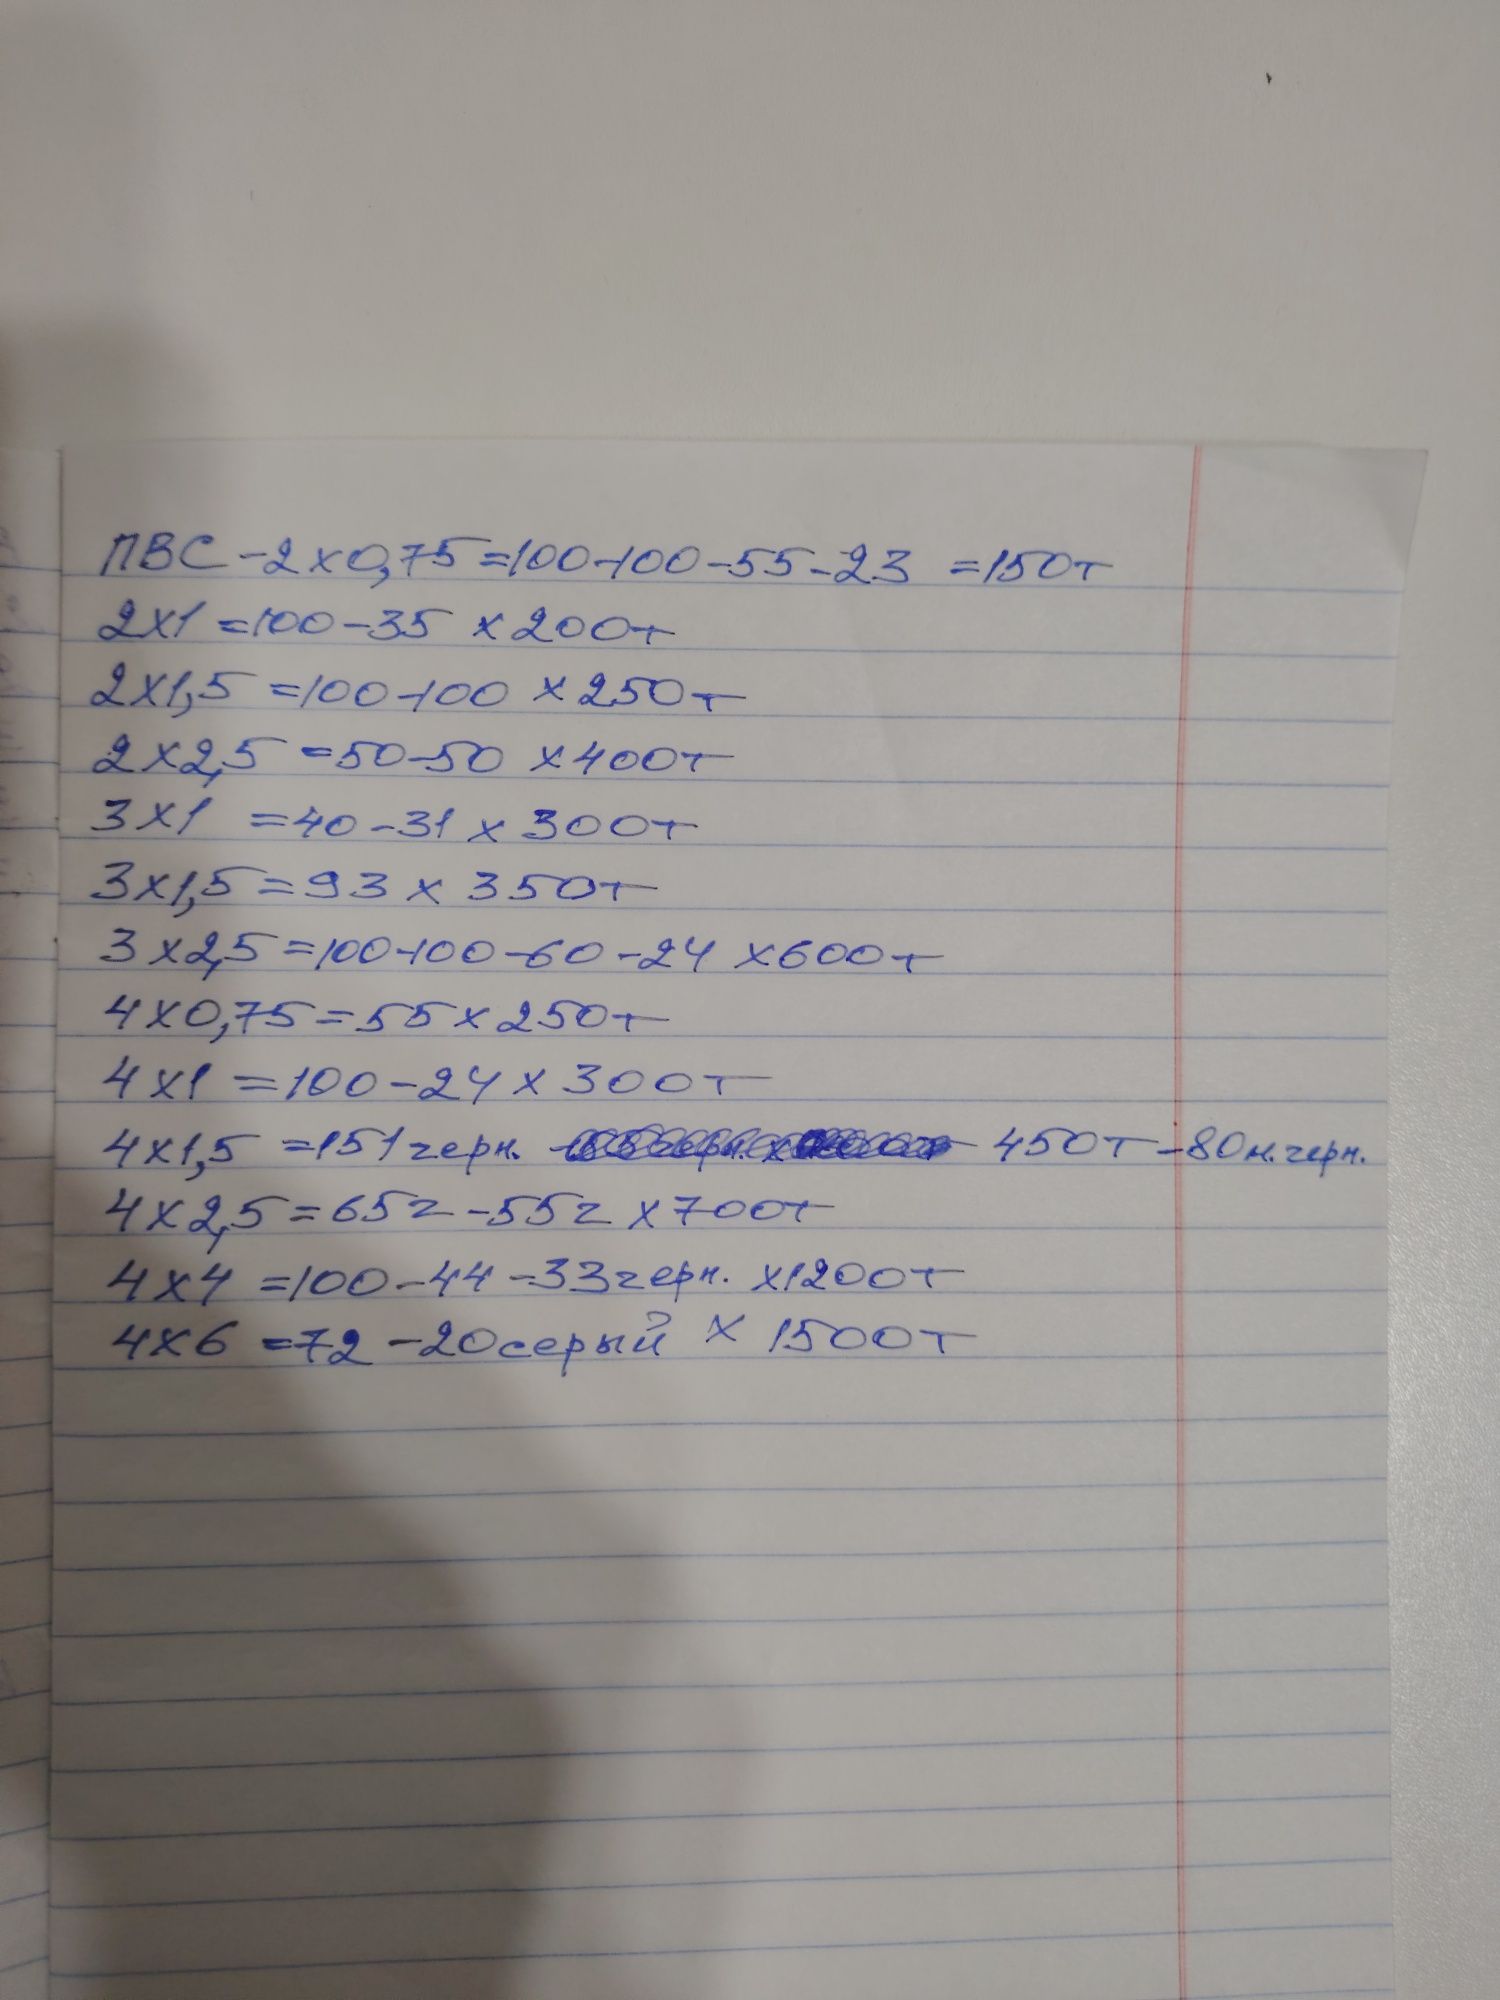 ПВС -2х0,75=100-100-55-23 =150т
2х1 =100-35 х200т
2х1,5 =100-100 х250т
2х2,5 =50-50 х400т
3х1 =40-31 х 300т
3х1,5=93 х 350т
3х2,5=100-100-60-24 х600т
4х0,75=55х250т
4х1 =100-24х300т
4х1,5 =151черн. 450т-80м.черн.
4х2,5=65г-55г х700т
4х4 =100-44-33черн. х1200т
4х6 =72 -20серый х 1500т